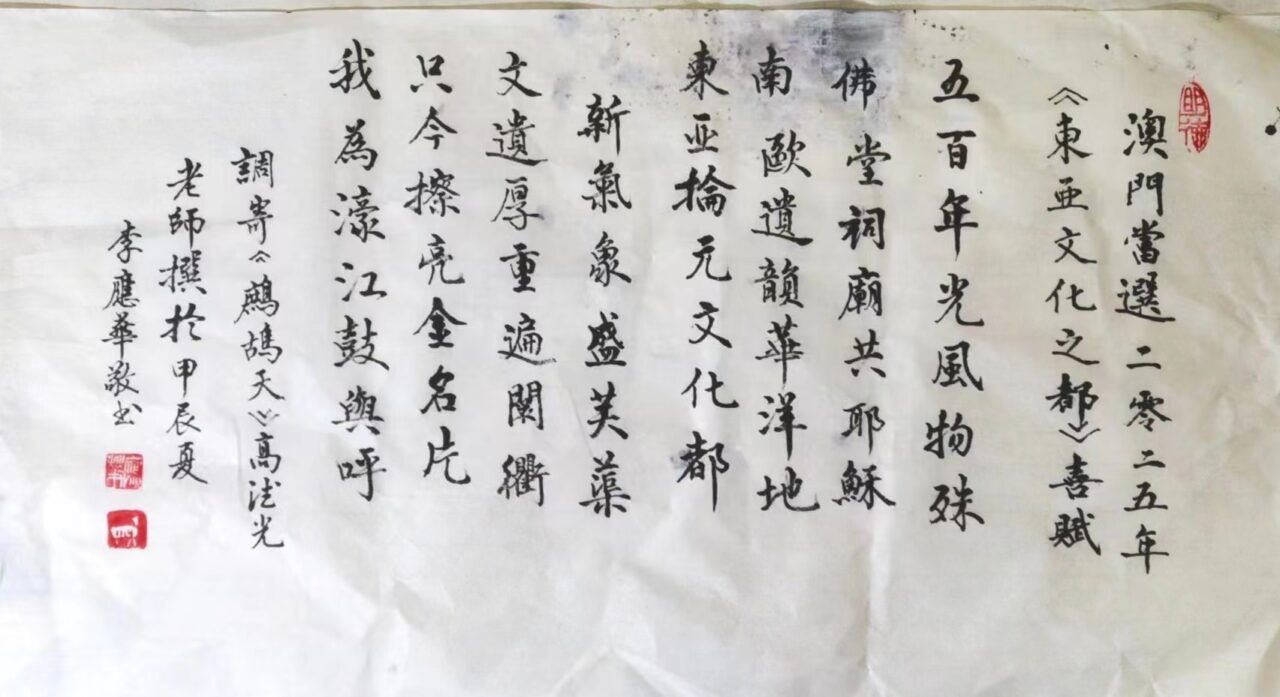 澳門當選二零二五年
《東亚文化之都》喜賦
五百年光風物殊
佛堂祠廟共耶穌
南歐遺韻華洋地
東亚掄元文化都
新氣象盛芙蕖
文遺厚重遍闤衢
只今擦亮金名片
我為濠江鼓與呼
調寄《鷓鴣天》高法光
老師撰於甲辰夏
李應華敬书